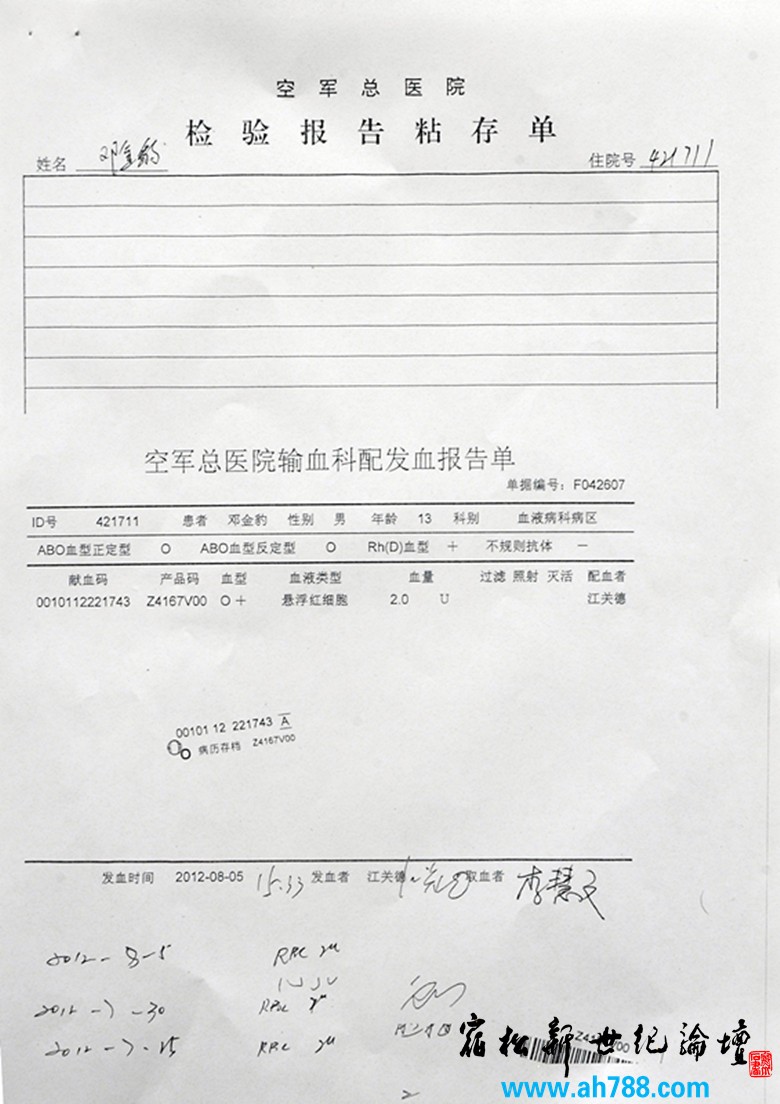 空军总医院
检验报告粘存单
姓名 邓金豹 住院号 421711
空军总医院输血科配发血报告单
单据编号：F042607
ID号 421711 患者 邓金豹 性别 男 年龄 13 科别 血液病科病区
ABO血型正定型 O ABO血型反定型 O Rh(D)血型 + 不规则抗体 －
献血码 产品码 血型 血液类型 血量 过滤 照射 灭活 配血者
0010112221743 Z4167V00 O＋ 悬浮红细胞 2.0 U 江关德
00101 12 221743 A
O 病历存档 Z4167V00
发血时间 2012-08-05 15:33 发血者 江关德 取血者 李慧文
2012-8-5 RBC 2u
2012-7-30 RBC 2u
2012-7-25 RBC 2u
宿松新世纪論壇
www.ah788.com